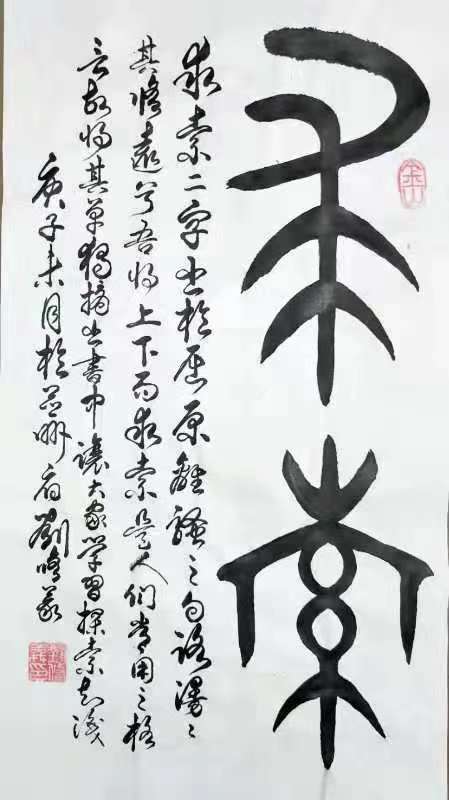 求索
求索二字出於屈原離騷之句路漫〻
其修遠兮吾将上下而求索是人们常用之格
言故将其单独摘出書中讓大家学習探索知识
庚子未月於州府劉